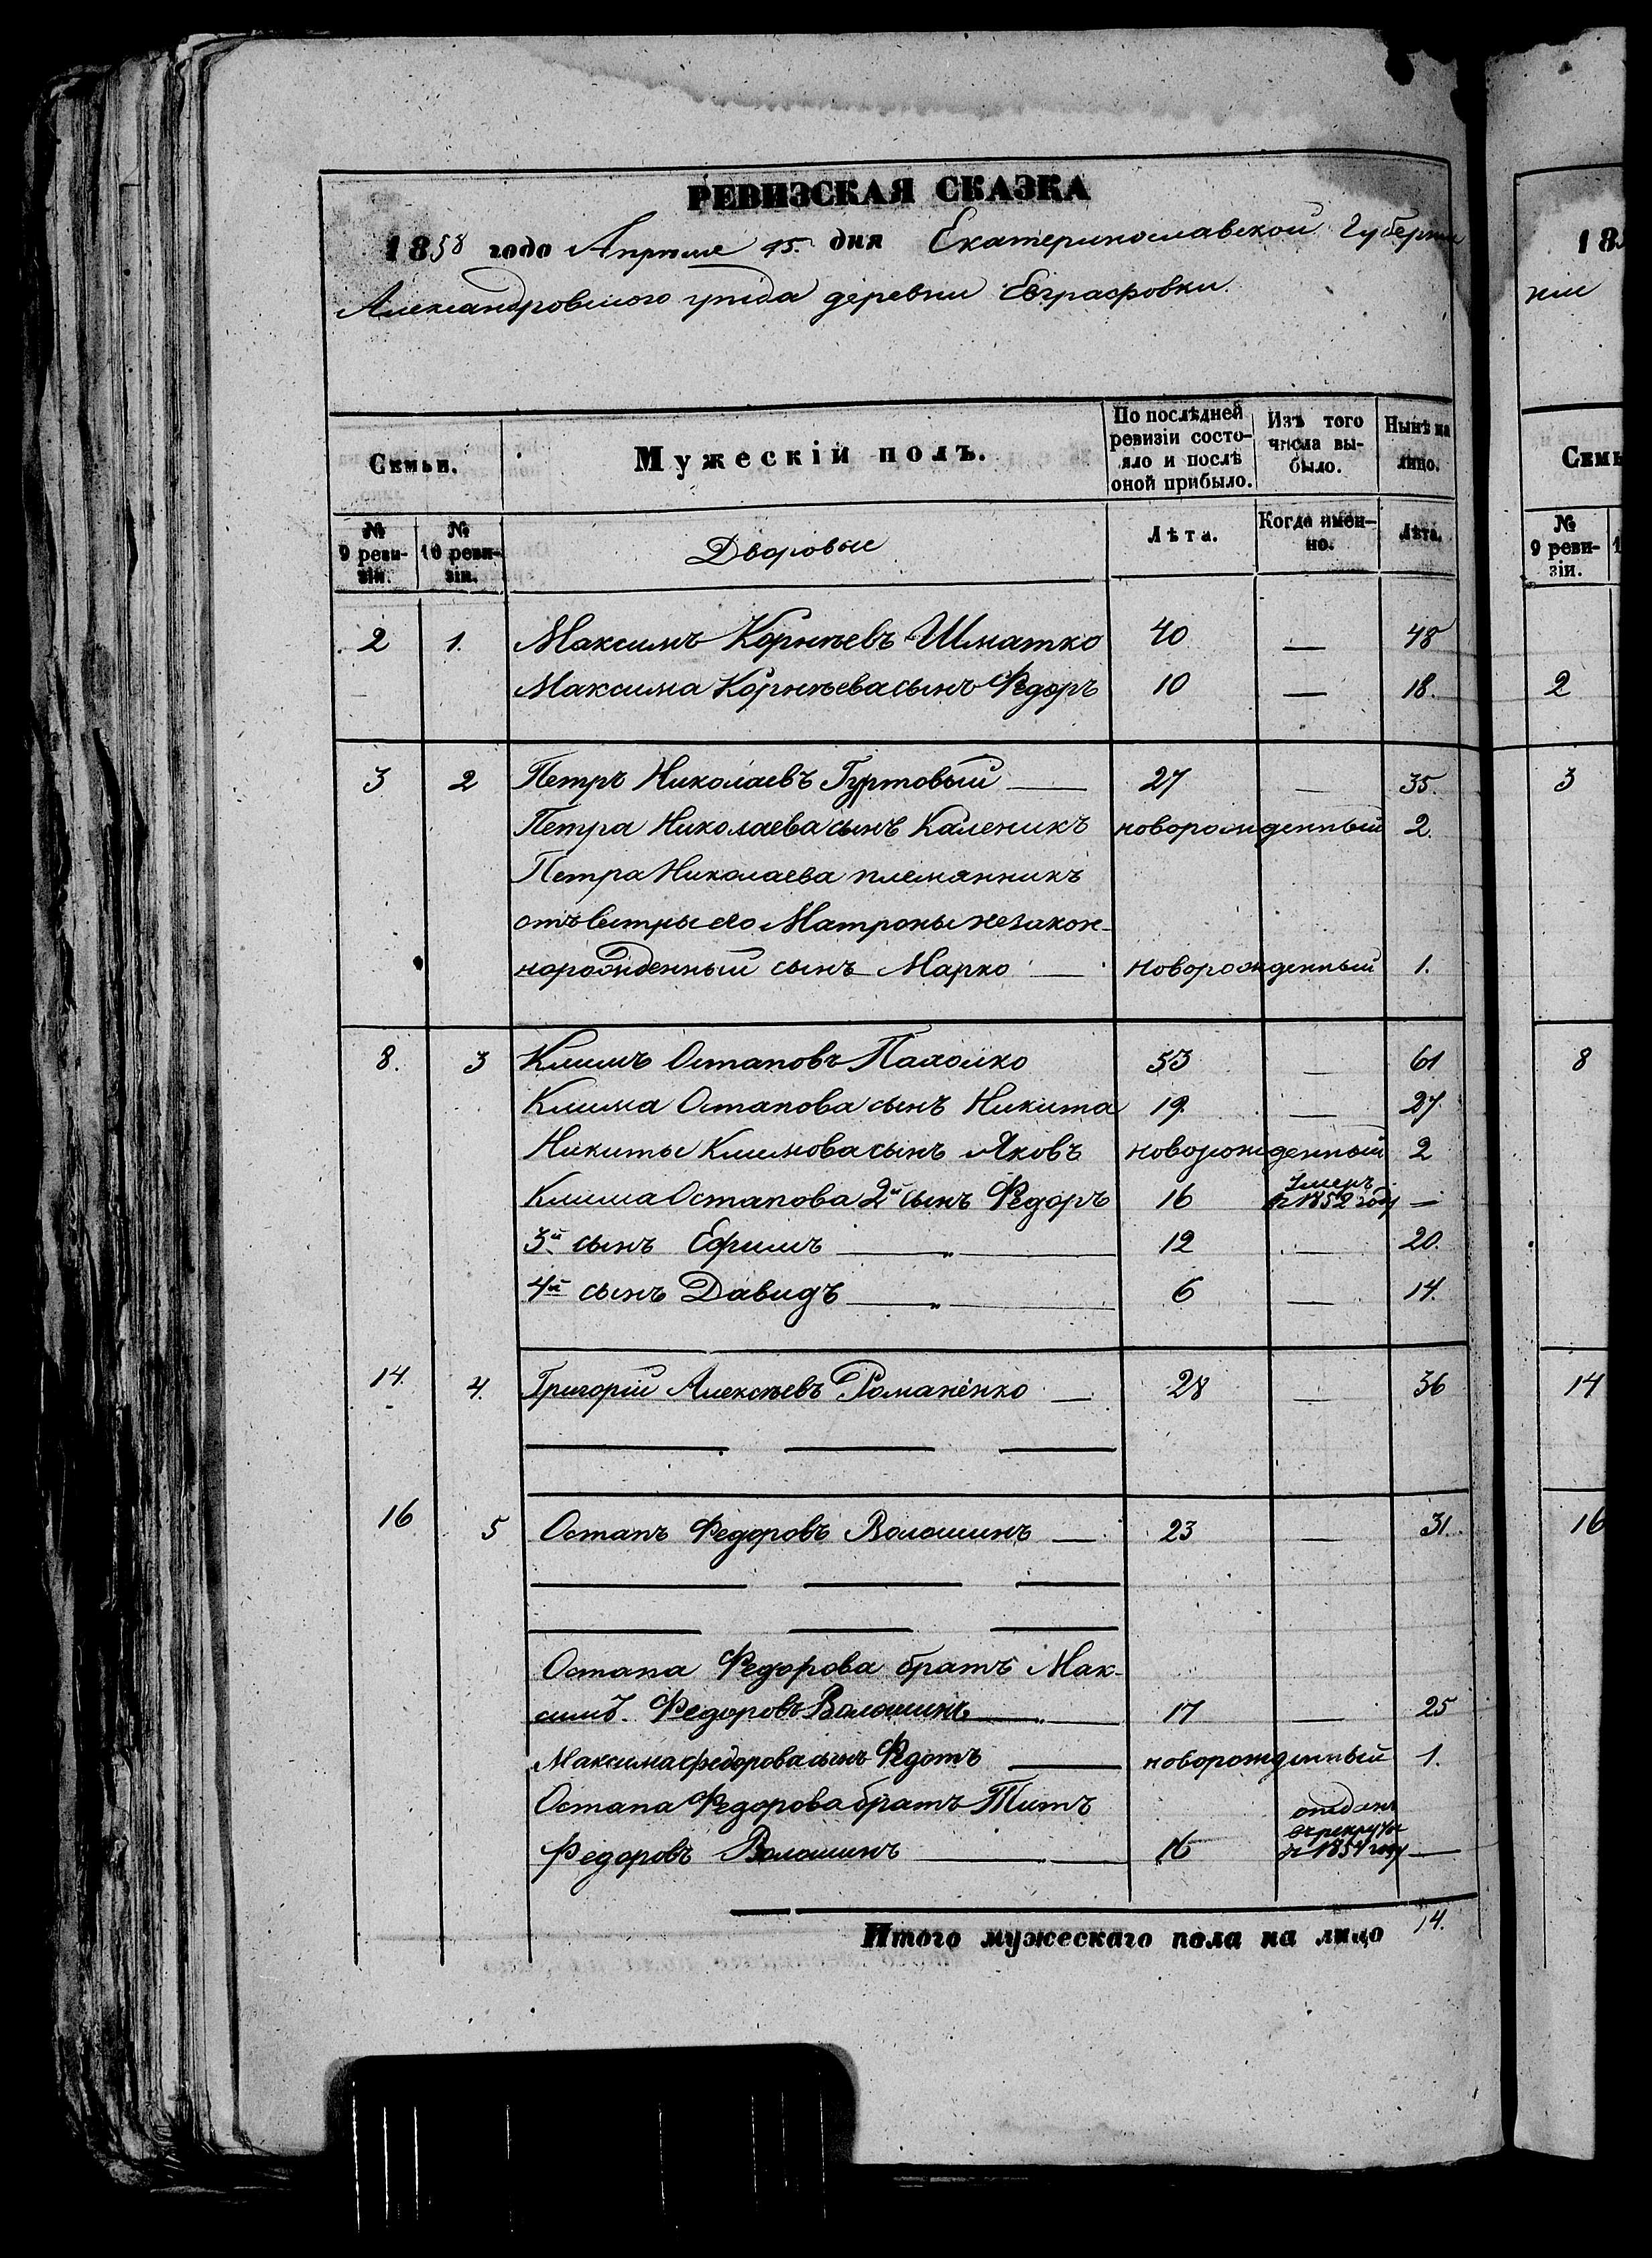 РЕВИЗСКАЯ СКАЗКА
1858 годо Апреля 15 дня Екатеринославской Губерни
Александровского уезда деревни Евграфовки
Семьи.
Мужескій полъ.
По послѣдней ревизіи состо-
яло и послѣ
оной прибыло.
Изъ того
числа вы-
было.
Нынѣ на
лицо.
№
9 реви-
зіи.
№
10 реви-
зіи.
Дворовые
Лѣта.
Когда имен-
но.
Лѣта.
2 1. Максимъ Корнѣевъ Шматко 40 — 48
Максима Корнѣева сынъ Федоръ 10 — 18.
3 2 Петръ Николаевъ Гуртовый — 27 — 35.
Петра Николаева сынъ Каленикъ новорожденный 2.
Петра Николаева племянникъ
отъ Сестры его Матроны незакон-
норожденный сынъ Марко — новорожденный 1.
8. 3 Климъ Остаповъ 53 — 61
Клима Остапова сынъ Никита 19. — 27.
Никиты Климова сынъ Яковъ новорожденный 2
Клима Остапова 2й сынъ Федоръ 16 Умеръ
в 1852 году —
3й сынъ Ефимъ — „ — 12 — 20.
4й сынъ Давидъ — „ — 6 — 14.
14. 4. Григорій Алексѣевъ Романенко — 28 — 36
16 5 Остапъ Федоровъ Волошинъ — 23 — 31.
Остапа Федорова братъ Мак-
симъ Федоровъ Волошинъ — „ — 17 — 25
Максима Федорова сынъ Федотъ — новорожденный 1.
Остапа Федорова братъ Титъ
Федоровъ Волошинъ — 16 отданъ
въ рекруты
в 1854 году —
Итого мужескаго пола на лицо 14.
185
нии
Семь
№
9 реви-
зіи.
2
3
8
14
16